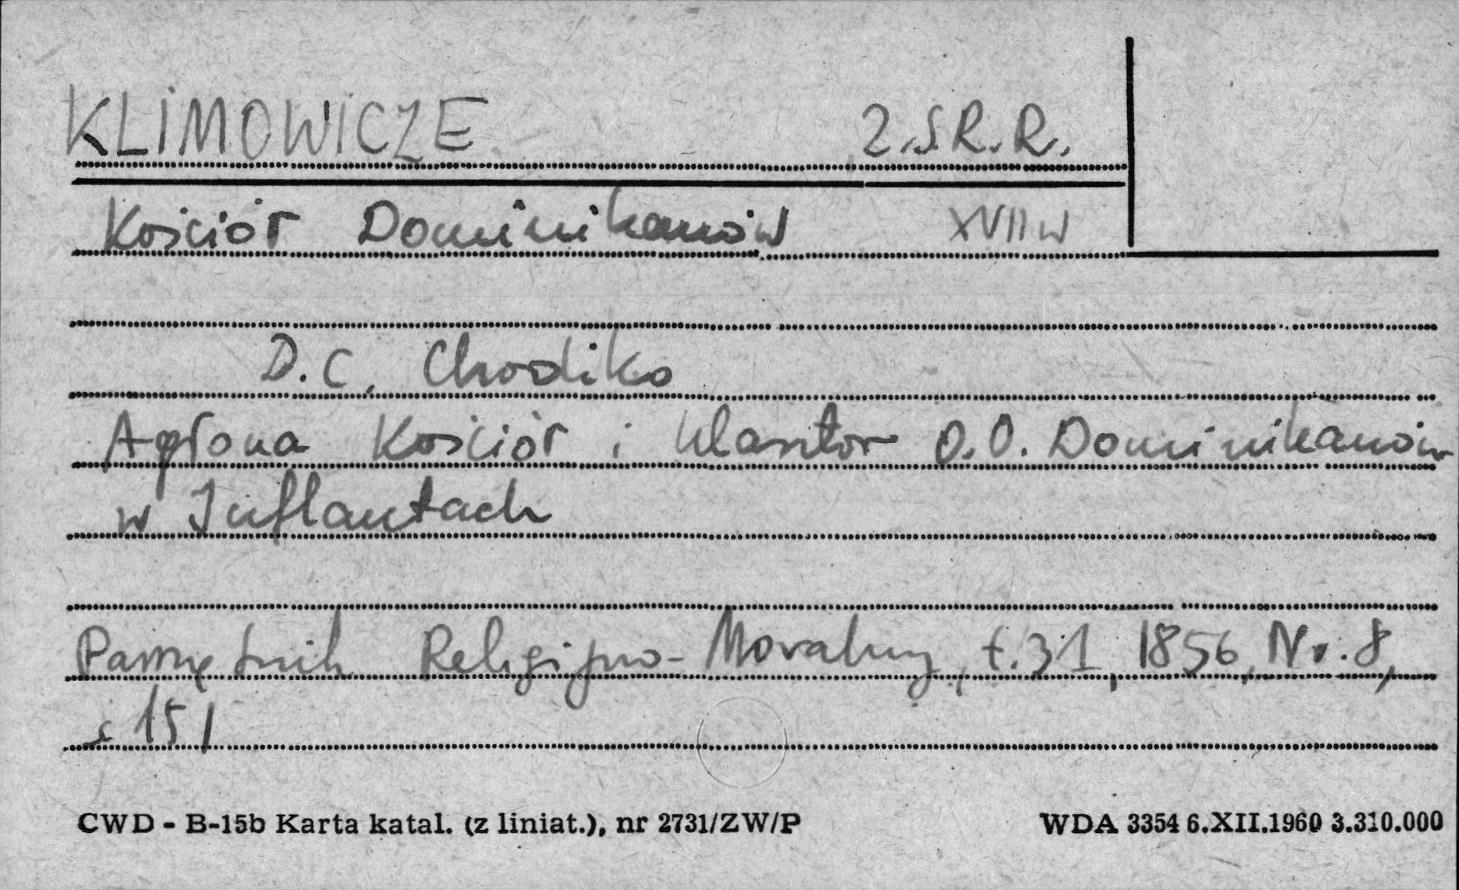 KLIMOWICZE Z.S.R.R.
Kościół Dominikanów XVII w
D.C. Chodźko
Agłona Kościół i klasztor O.O. Dominikanów
w Inflantach
Pamiętnik Religijno-Moralny, t.31, 1856, Nr.8,
s 151
CWD - B-15b Karta katal. (z liniat.), nr 2731/ZW/P WDA 3354 6.XII.1960 3.310.000